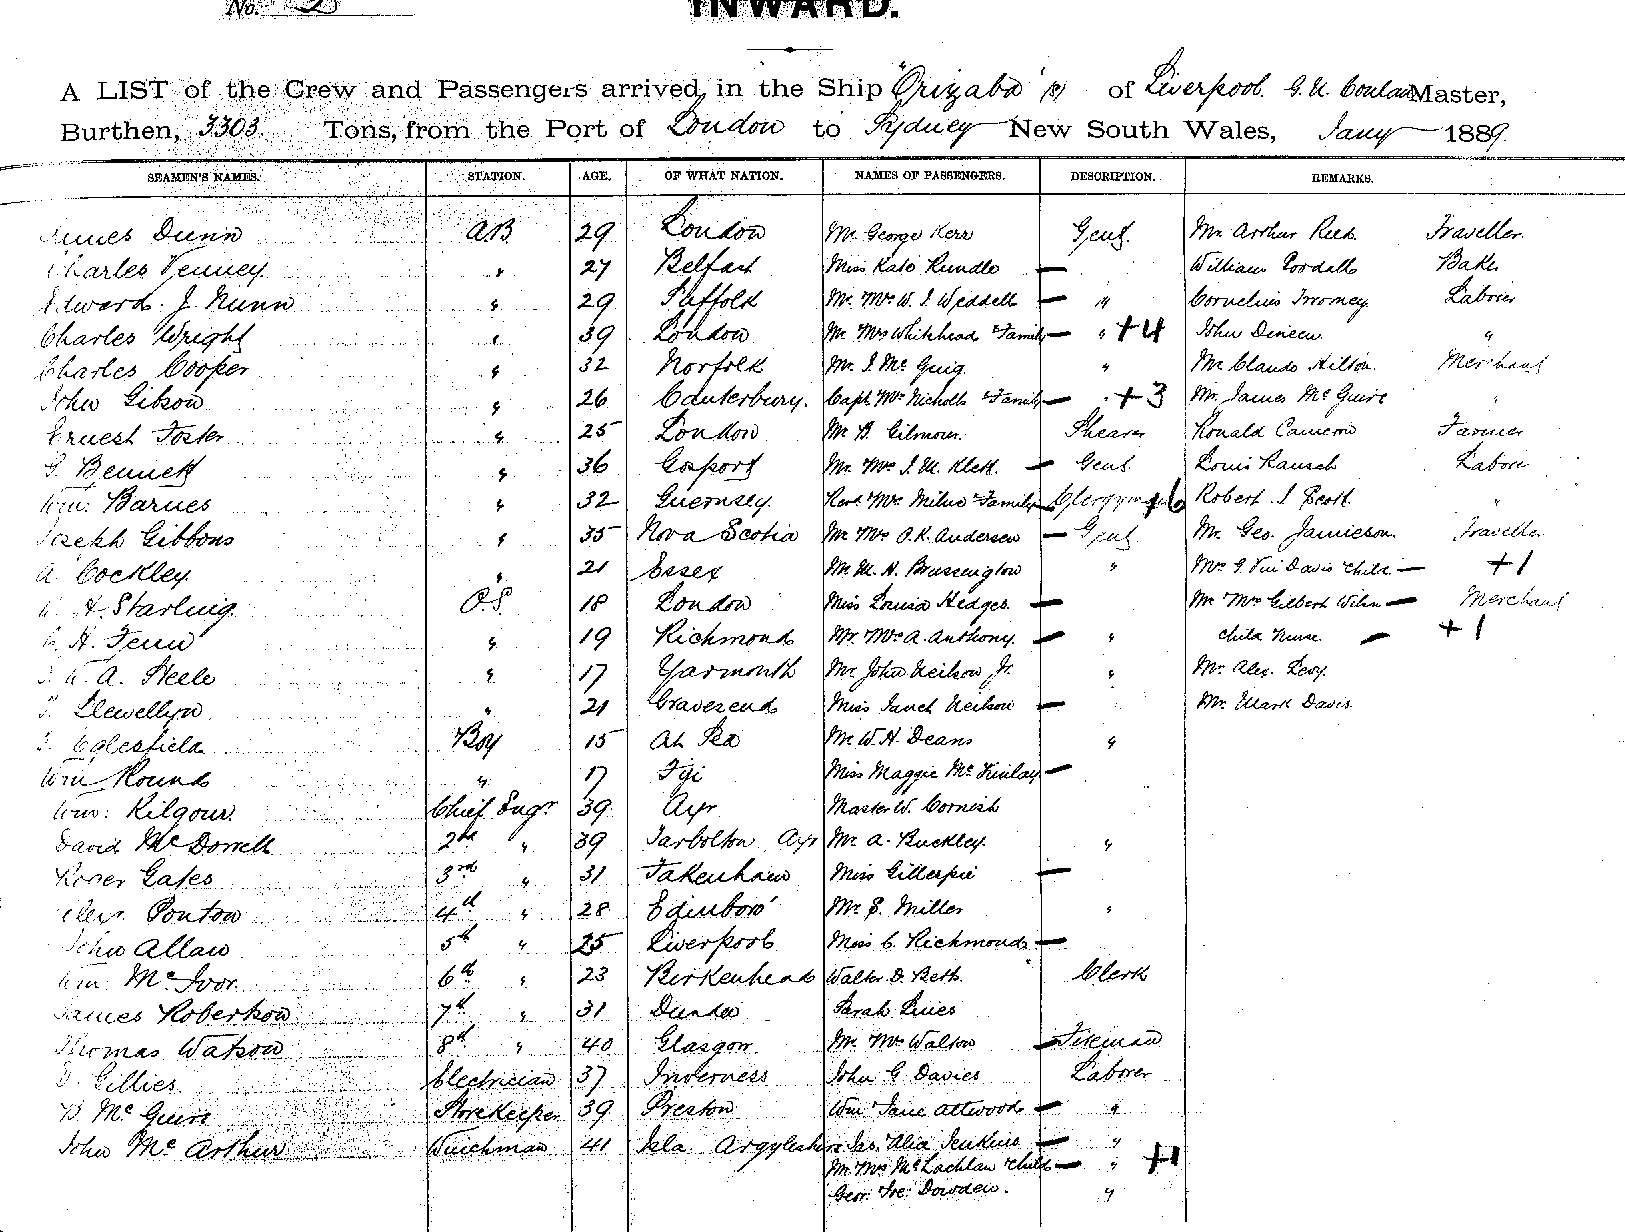 No. 2
INWARD.
A LIST of the Crew and Passengers arrived in the Ship "Orizaba" (s) of Liverpool. Master,
Burthen, 3303 Tons, from the Port of London to Sydney New South Wales, Jany 1889.
SEAMEN'S NAMES. STATION. AGE. OF WHAT NATION. NAMES OF PASSENGERS. DESCRIPTION. REMARKS.
James Dunn AB 29 London Mr. George Kerr Gent. Mr. Arthur Traveller
Charles " 27 Belfast Miss Kate Rundle — William Baker
Edward J. Nunn " 29 Suffolk Mr. Mrs W. J. Weddell — " Cornelius Laborer
Charles Wright " 39 London Mr Mrs Whitehead & Family — " +4 John Dineen "
Charles Cooper " 32 Norfolk Mr. J. McGuig " Mr Claude Hilton Merchant
John Gibson " 26 Canterbury. Capt. Mrs Nicholls & Family — " +3 Mr. James McGuire "
Ernest Foster " 25 London Mr. B. Gilmour. Shearer Ronald Cameron Farmer
Bennett " 36 Gosport Mr. Mrs — Gent. Louis Rausch Labore
Wm. Barnes " 32 Guernsey. Revd Mrs Milne & Family — Clergyman +6 Robert J Scott "
Joseph Gibbons " 35 Nova Scotia Mr. Mrs O. K. Andersen — Gent Mr. Geo. Jamieson. Traveller
A. Cockley " 21 Essex Mr. M. H. " Mrs Davis & Child — +1
H. Starling O.S. 18 London Miss Louisa Hedges. — Mr. Mrs Gilbert — Merchant
H. Fenn " 19 Richmond Mr. Mrs A. Anthony. — " Child Nurse — +1
A. Steele " 17 Yarmouth Mr. John Neilson Jr. " Mr. Alex. Levy.
Llewellyn " 21 Gravesend Miss Janet Neilson — Mr. Mark Davis
Eglesfield Boy 15 At Sea Mr. W. H. Deans "
Wm Round " 17 Fiji Miss Maggie McKinlay —
Wm. Kilgour. Chief Engr 39 Ayr Master W. Cornish
David McDowell 2nd " 39 Tarbolton Ayr Mr. A. Buckley. "
Roger Gates 3rd " 31 Fakenham Miss Gillespie —
Alexr. Ponton 4th " 28 Edinboro' Mr. S. Miller "
John Allan 5th " 25 Liverpool Miss C. Richmond —
Wm. McIvor 6th " 23 Birkenhead Walter D. Beth. Clerk
James Robertson 7th " 31 Dundee Sarah Lines
Thomas Watson 8th " 40 Glasgow Mr. Mrs Walton — Fireman
Gillies Electrician 37 Inverness John G. Davies Laborer
McGuire Storekeeper 39 Preston Wm Jane Attwood — "
John McArthur Winchman 41 Isla Argyleshire Jas. Alia Jenkins — "
Mr. Mrs McLachlan & Child — " +1
Geor. Dowden. "